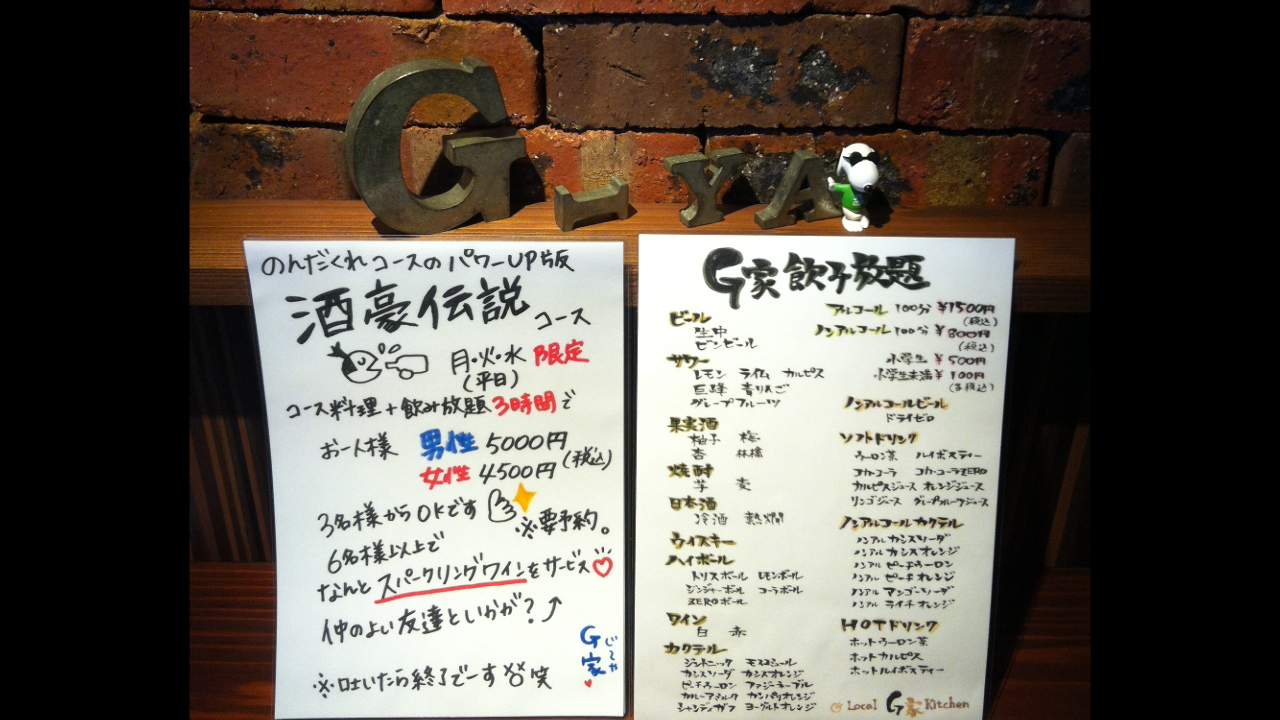 G-YA
のんだくれコースのパワーUP版
酒豪伝説コース
月・火・水 限定
(平日)
コース料理+飲み放題3時間で
お一人様 男性 5000円
女性 4500円 (税込)
3名様からOKです
※要予約。
6名様以上で
なんとスパークリングワインをサービス♡
仲のよい友達といかが?
※吐いたら終了でーす 笑
G家
じーや
G家 飲み放題
アルコール 100分 ¥1500円
(税込)
ノンアルコール 100分 ¥800円
(税込)
小学生 ¥500円
小学生未満 ¥100円
(各税込)
ビール
生中
ビンビール
サワー
レモン ライム カルピス
巨峰 青りんご
グレープフルーツ
果実酒
柚子 梅
杏 林檎
焼酎
芋 麦
日本酒
冷酒 熱燗
ウイスキー
ハイボール
トリスボール レモンボール
ジンジャーボール コーラボール
ZEROボール
ワイン
白 赤
カクテル
ジントニック モスコミュール
カシスソーダ カシスオレンジ
ピーチウーロン ファジーネーブル
カルーアミルク カンパリオレンジ
シャンディガフ ヨーグルトオレンジ
ノンアルコールビール
ドライゼロ
ソフトドリンク
ウーロン茶 ルイボスティー
コカ・コーラ コカ・コーラZERO
カルピスジュース オレンジジュース
リンゴジュース グレープフルーツジュース
ノンアルコールカクテル
ノンアル カシスソーダ
ノンアル カシスオレンジ
ノンアル ピーチウーロン
ノンアル ピーチオレンジ
ノンアル マンゴーソーダ
ノンアル ライチオレンジ
HOTドリンク
ホットウーロン茶
ホットカルピス
ホットルイボスティー
Local G家 Kitchen